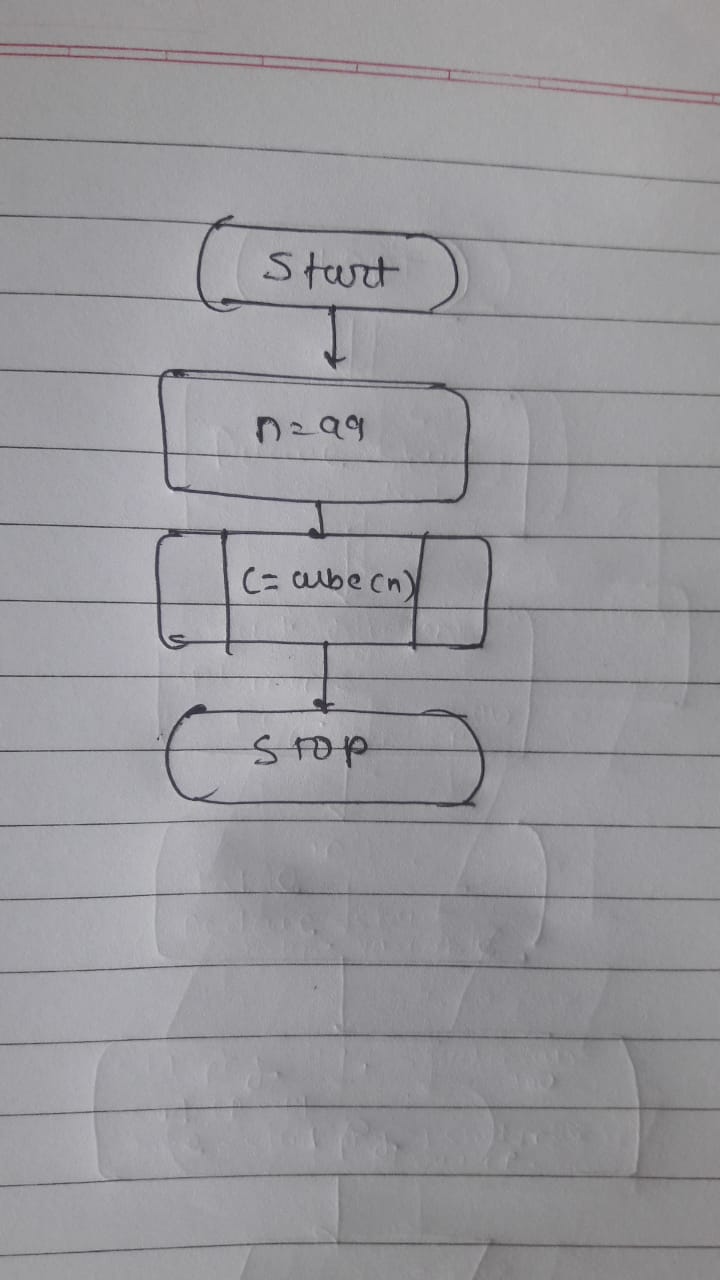 Start
n=99
C=cube(n)
STOP